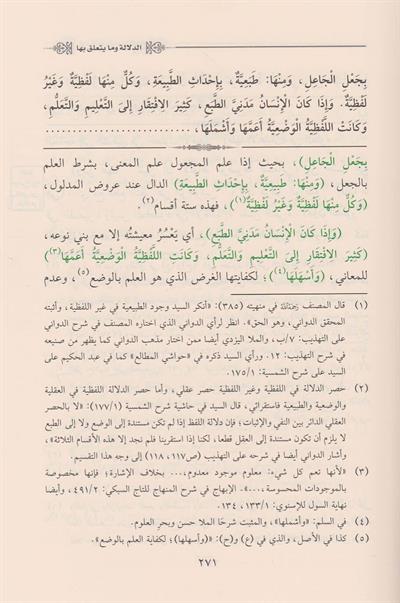 الدلالة وما يتعلق بها
بِجَعْلِ الْجَاعِلِ، وَمِنْهَا: طَبَعِيَّةٌ، بِإِحْدَاثِ الطَّبِيعَةِ، وَكُلٌّ مِنْهَا لَفْظِيَّةٌ وَغَيْرُ
لَفْظِيَّةٌ. وَإِذَا كَانَ الْإِنْسَانُ مَدَنِيَّ الطَّبَعِ، كَثِيرَ الِافْتِقَارِ إِلىَ التَّعْلِيمِ وَالتَّعَلُّمِ،
وَكَانَتْ اللَّفْظِيَّةُ الْوَضْعِيَّةُ أَعَمَّهَا وَأَشْمَلَهَا، ..............................
بِجَعْلِ الْجَاعِلِ)، بحيث إذا علم المجعول علم المعنى، بشرط العلم
بالجعل، (وَمِنْهَا: طَبِيعِيَّةٌ، بِإِحْدَاثِ الطَّبِيعَةِ) الدال عند عروض المدلول،
(وَكُلٌّ مِنْهَا لَفْظِيَّةٌ وَغَيْرُ لَفْظِيَّةٌ(١))، فهذه ستة أقسام(٢).
(وَإِذَا كَانَ الْإِنْسَانُ مَدَنِيَّ الطَّبَعِ)، أي يَعْسُرُ معيشتُه إلا مع بني نوعه،
(كَثِيرَ الِافْتِقَارِ إِلىَ التَّعْلِيمِ وَالتَّعَلُّمِ، وَكَانَتِ اللَّفْظِيَّةُ الْوَضْعِيَّةُ أَعَمَّهَا(٣))
للمعاني، (وَأَسْهَلَهَا(٤))؛ لكفايتها الغرض الذي هو العلم بالوضع(٥)، وعدم
(١) قال المصنف رَحِمَهُ اللَّهُ في منهيته (٣٨٥): «أنكر السيد وجود الطبيعية في غير اللفظية، وأثبته
المحقق الدواني، وهو الحق». انظر لرأي الدواني الذي اختاره المصنف في شرح الدواني
على التهذيب: ٧/ب، والملا اليزدي أيضا ممن اختار مذهب الدواني كما يظهر من صنيعه
في شرح التهذيب: ١٢. ورأي السيد ذكره في «حواشي المطالع» كما في عبد الحكيم على
السيد على شرح الشمسية: ١٧٥/١.
(٢) حصر الدلالة في اللفظية وغير اللفظية حصر عقلي، وأما حصر الدلالة اللفظية في العقلية
والوضعية والطبيعية فاستقرائي، قال السيد في حاشية شرح الشمسية (١٧٧/١): «لا بالحصر
العقلي الدائر بين النفي والإثبات؛ فإن دلالة اللفظ إذا لم تكن مستندة إلى الوضع ولا إلى الطبع
لا يلزم أن تكون مستندة إلى العقل قطعا، لكنا إذا استقرينا فلم نجد إلا هذه الأقسام الثلاثة»،
وأشار الدواني أيضا في شرحه على التهذيب (ص١١٧، ١١٨) إلى وجه هذا التقسيم.
(٣) «لأنها تعم كل شيء: معلوم موجود معدوم،... بخلاف الإشارة؛ فإنها مخصوصة
بالموجودات المحسوسة،...». الإبهاج في شرح المنهاج للتاج السبكي: ٤٩١/٢، وأيضا
نهاية السول للإسنوي: ١٣٣/١، ١٣٤.
(٤) في السلم: «وأشملها»، والمثبت شرحَا الملا حسن وبحر العلوم.
(٥) كذا في الأصل، والذي في (ع) و(ح): «(وأسهلها)؛ لكفاية العلم بالوضع».
٢٧١